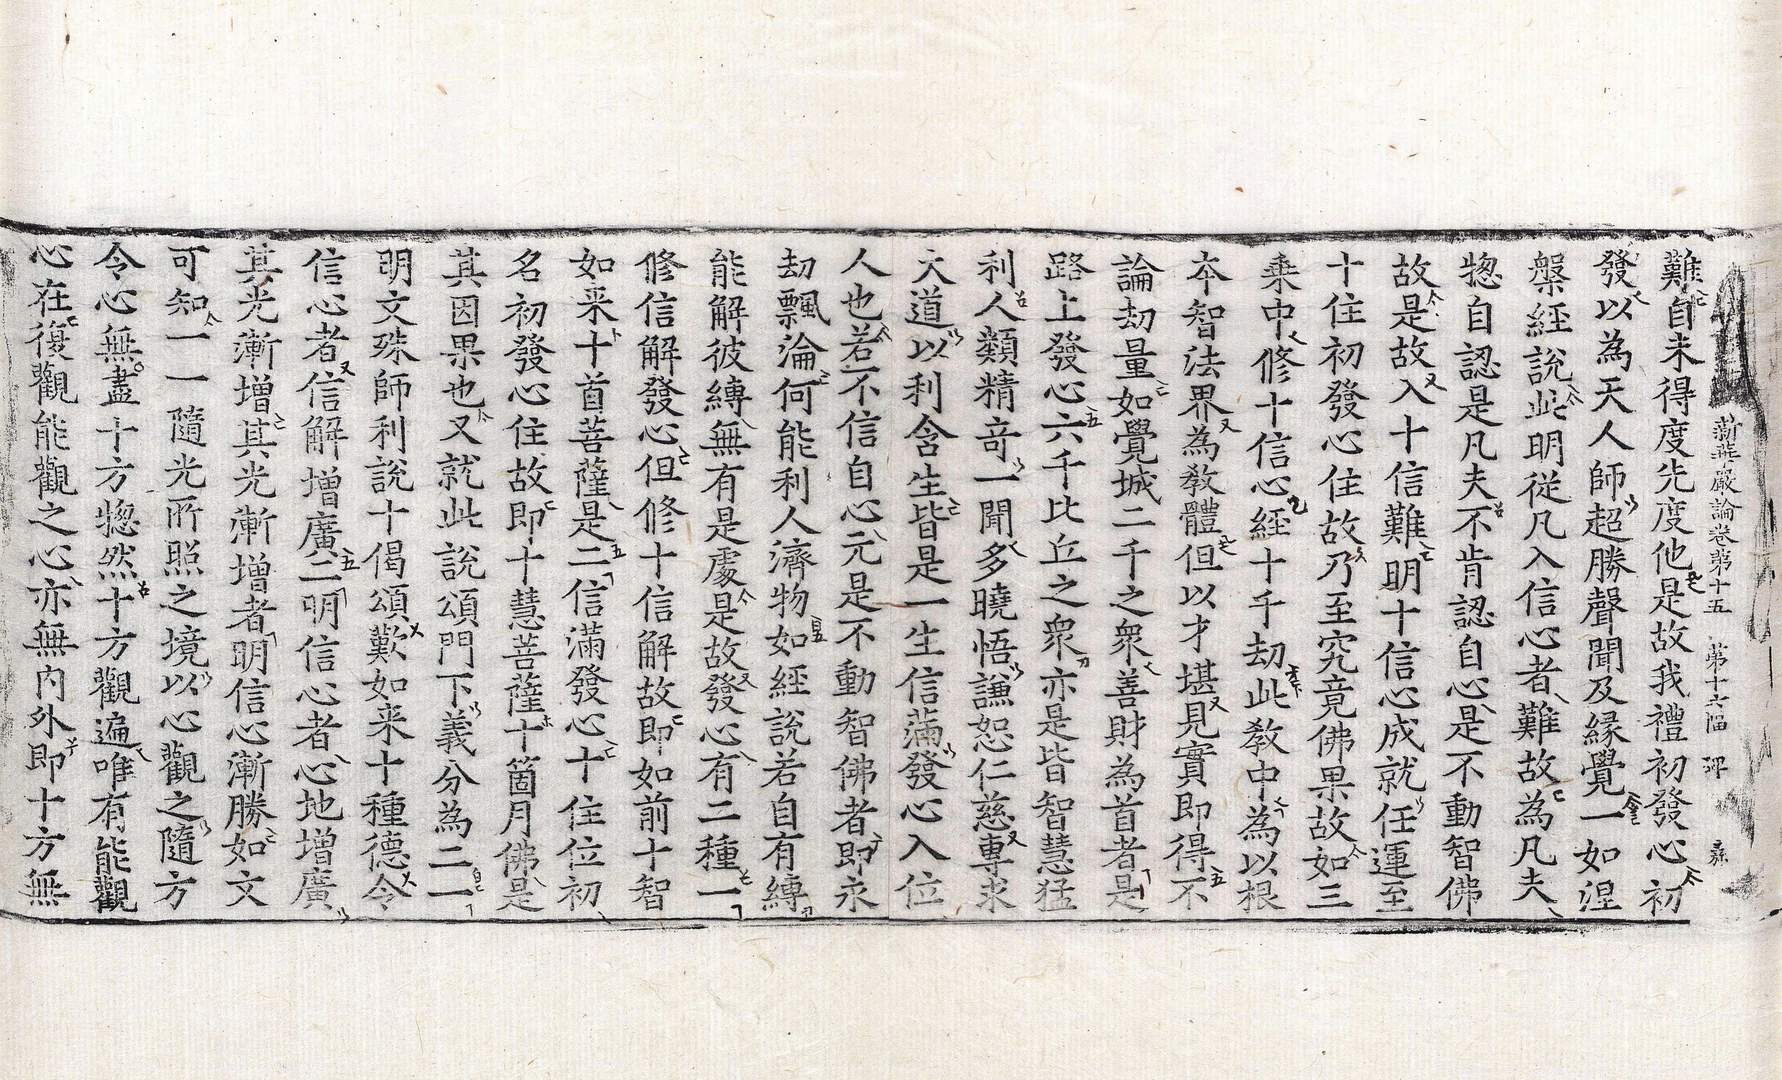 新華嚴論卷第十五　第十六幅　　
難自未得度先度他是故我禮初發心初
發以為天人師超勝聲聞及緣覺一如涅
槃經說此明從凡入信心者難故為凡夫
揔自認是凡夫不肯認自心是不動智佛
故是故入十信難明十信心成就任運至
十住初發心住故乃至究竟佛果故如三
乘中修十信心經十千劫此教中為以根
本智法界為教體但以才堪見實即得不
論劫量如覺城二千之衆善財為首者是
路上發心六千比丘之衆亦是皆智慧猛
利人類精奇一聞多曉悟謙恕仁慈專求
大道以利含生皆是一生信滿發心入位
人也若不信自心元是不動智佛者即永
劫飄淪何能利人濟物如經說若自有縛
能解彼縛無有是處是故發心有二種一
修信解發心但修十信解故即如前十智
如来十首菩薩是二信滿發心十住位初
名初發心住故即十慧菩薩十箇月佛是
其因果也又就此說頌門下義分為二一
明文殊師利說十偈頌歎如来十種德令
信心者信解增廣二明信心者心地增廣
其光漸增其光漸增者明信心漸勝如文
可知一一隨光所照之境以心觀之隨方
令心無盡十方揔然十方觀遍唯有能觀
心在復觀能觀之心亦無內外即十方無